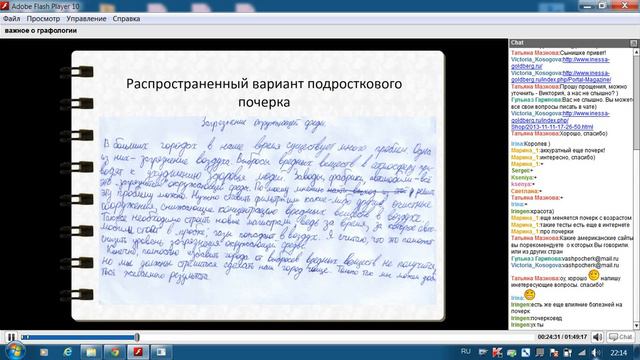 Adobe Flash Player 10
Файл Просмотр Управление Справка
важное о графологии
Распространенный вариант подросткового
почерка
Загрязнение окружающей среды.
В больших городах в наше время существует много проблем Одна
из них - загрязнение воздуха. Выбросы вредных веществ в атмосферу при-
водят к ухудшению здоровья людей. Заводы, фабрики, автомобили - всё
это загрязняет окружающую среду. По моему мнению решить
эту проблему можно. Нужно ставить фильтры или какие-либо другие очистные
сооружения, снижающие концентрацию вредных веществ в воздухе.
Также необходимо строить новые магистрали. Ведь за время, за которое авто-
мобиль стоит в пробке, газы попадают в воздух. Я считаю, что это поможет
снизить уровень загрязнения окружающей среды.
Конечно, полностью избавить города от выбросов вредных веществ не получится,
но мы должны стремиться сделать наш город чище. Только так мы можем доби-
ться желаемого результата.
Chat
Татьяна Мазнова:Сынишке привет!
Victoria_Kosogova:http://www.inessa-
goldberg.ru/
Victoria_Kosogova:http://www.inessa-
goldberg.ru/index.php/Portal-Magazine/
Татьяна Мазнова:Прошу прощения, можно
уточнить - Виктория, а нас не слышно? )
Гульназ Гарипова:Вас не слышно. Вы можете
все свои вопросы писать в чате)
Victoria_Kosogova:http://www.inessa-
goldberg.ru/index.php/
Shop/2013-11-11-17-26-50.html
Татьяна Мазнова:Хорошо, спасибо)
Irina:Королев )
Марина_1:аккуратный еще почерк!
Марина_1:интересно, спасибо!
Марина_1:+
Sergei:+
Kseniya:+
ksenya:+
Светлана:+
Татьяна Мазнова:+
Irina:+
Iringen:красота)
Марина_1:еще меняется почерк с возрастом
Марина_1:такие тесты есть еще в интернете
Марина_1:про почерки
Татьяна Мазнова:Какие американские сайты
вы порекомендуете о которых Вы говорили.
или из других стран
Гульназ Гарипова:vashpocherk@mail.ru
Victoria_Kosogova:vashpocherk@mail.ru
Татьяна Мазнова:оу, хорошо напишу
интересующие вопросы. спасибо!
Irina:
Iringen:есть же еще влияние болезней на
почерк
Iringen:почерковед
Iringen:ух ты
00:24:31 / 01:49:17
Chat
RU
22:14